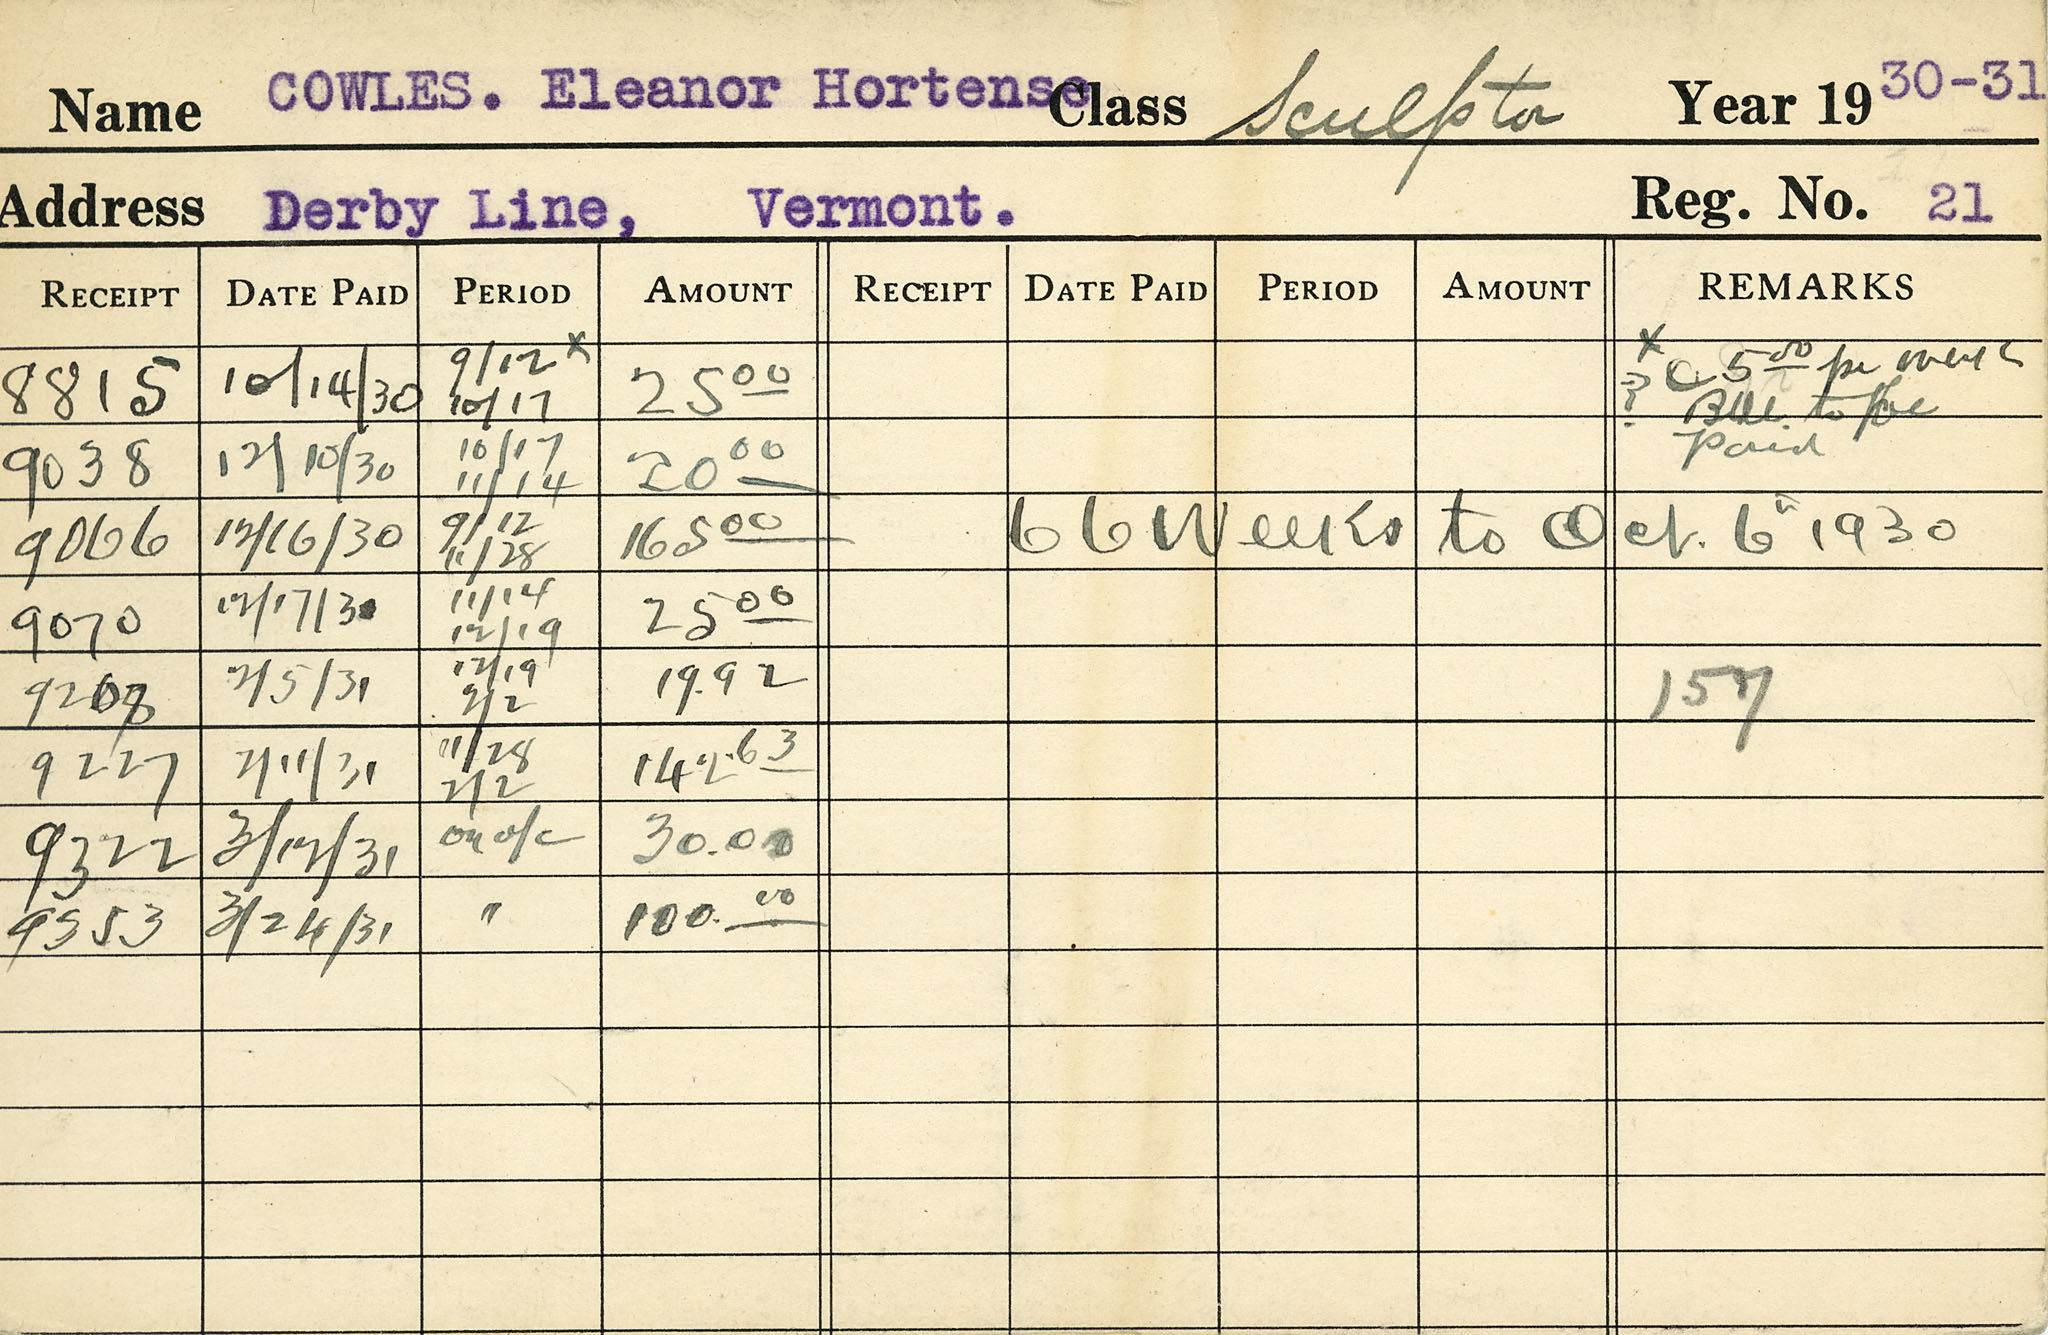 Name COWLES. Eleanor Hortense Class Sculptor Year 19 30-31
Address Derby Line, Vermont. Reg. No. 21
RECEIPT DATE PAID PERIOD AMOUNT RECEIPT DATE PAID PERIOD AMOUNT REMARKS
8815 10/14/30 9/12 x 10/17 25 00
x @ 5 00 per week
? Bal to be
paid
9038 12/10/30 10/17 11/14 20 00
9066 12/16/30 9/12 11/28 165 00 66 Weeks to Oct. 6" 1930
9070 12/17/30 11/14 12/19 25 00
9208 2/5/31 12/19 2/2 19.92 157
9227 2/11/31 11/28 2/2 142.63
9322 3/12/31 on a/c 30.00
9353 3/24/31 " 100.00